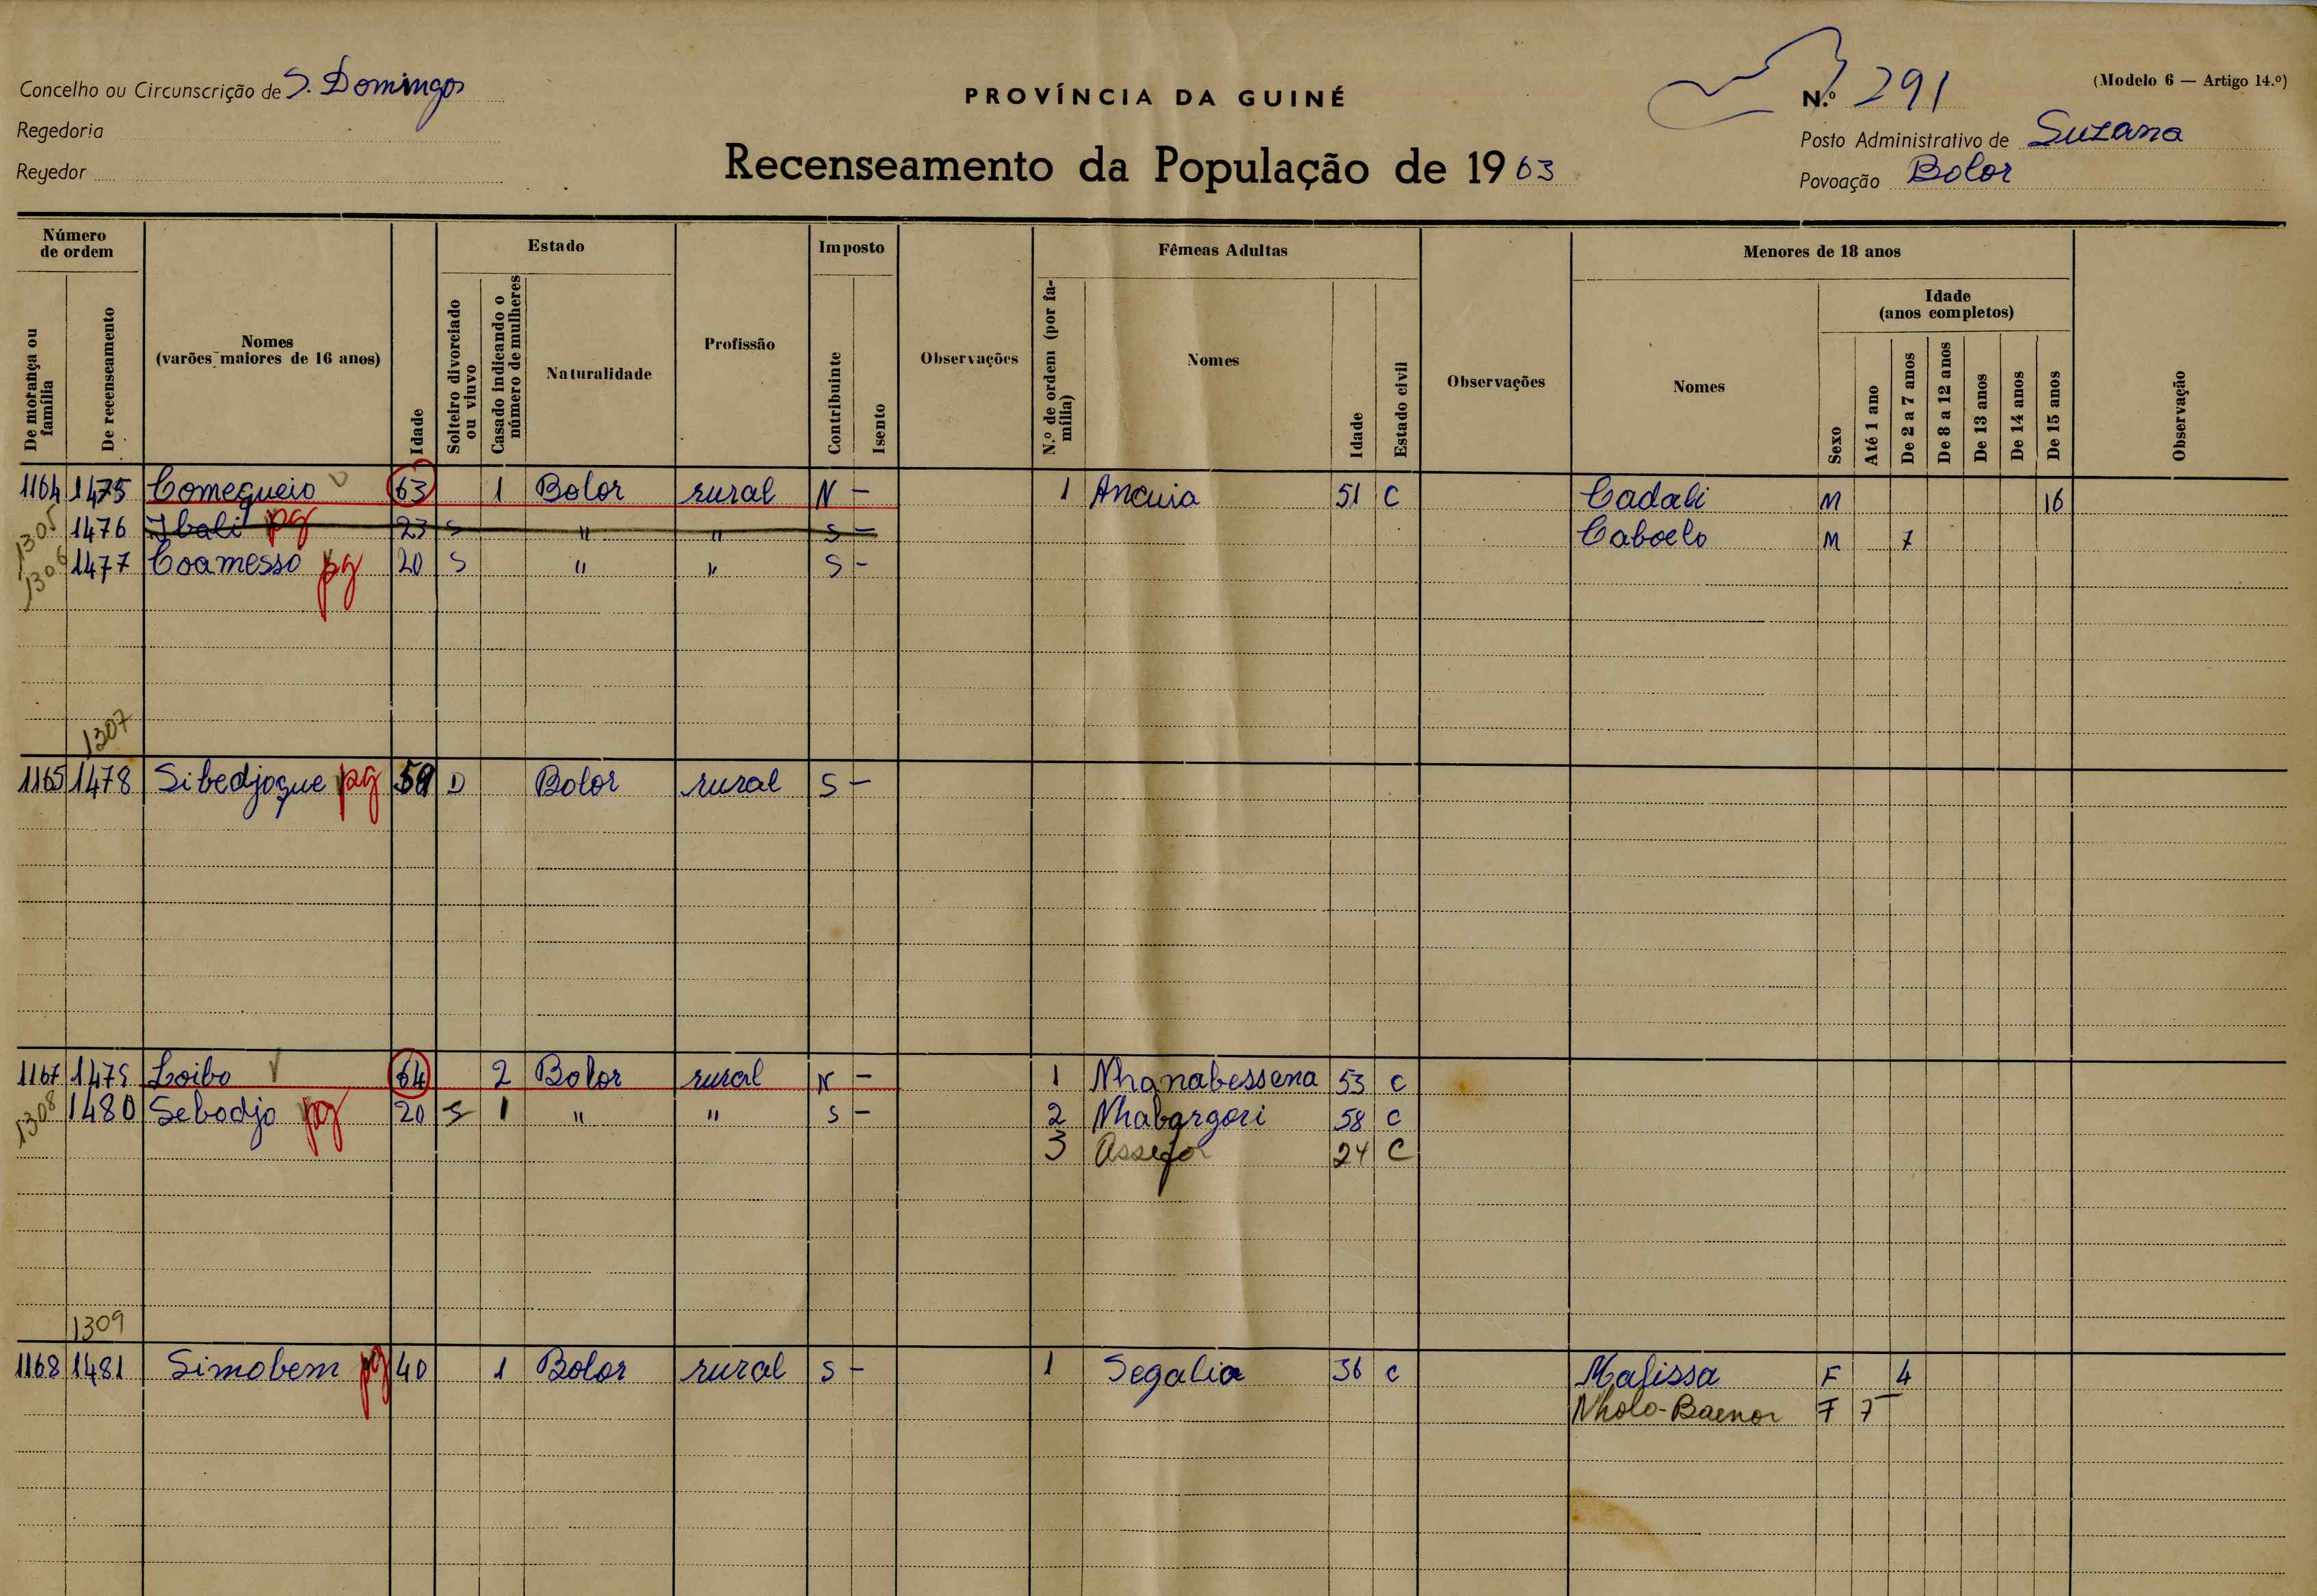 Concelho ou Circunscrição de S. Domingos
Regedoria
Regedor
PROVÍNCIA DA GUINÉ
Recenseamento da População de 1963
N.º 291
(Modelo 6 — Artigo 14.º)
Posto Administrativo de Suzana
Povoação Bolor
Número de ordem
De morança ou família
De recenseamento
Nomes (varões maiores de 16 anos)
Idade
Estado
Solteiro divorciado ou viuvo
Casado indicando o número de mulheres
Naturalidade
Profissão
Imposto
Contribuinte
Isento
Observações
Fêmeas Adultas
N.º de ordem (por família)
Nomes
Idade
Estado civil
Observações
Menores de 18 anos
Nomes
Idade (anos completos)
Sexo
Até 1 ano
De 2 a 7 anos
De 8 a 12 anos
De 13 anos
De 14 anos
De 15 anos
Observação
1164 1475 Comegueio 63 1 Bolor rural N - 1 Ancuia 51 C Cadali M 16
1305 1476 Ibali pg 23 S " " S - Caboelo M 7
1306 1477 Coamesso pg 20 S " " S -
1307
1165 1478 Sibedjogue pg 59 D Bolor rural S -
1167 1479 Loibo 64 2 Bolor rural N - 1 Nhanabessena 53 C
1308 1480 Sebodjo pg 20 S 1 " " S - 2 Nhabargori 58 C
3 24 C
1309
1168 1481 Simobem pg 40 1 Bolor rural S - 1 Segalia 36 C Malissa F 4
Nholo-Baenor F 7